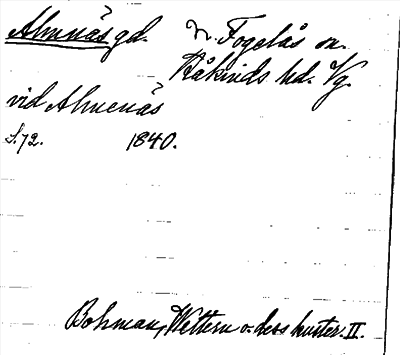 Almnäs gd. N. Fogelås sn.
Kåkinds hd. Vg.
vid Almenäs
S. 72. 1840.
Bohman, Wettern o. dess kuster. II.